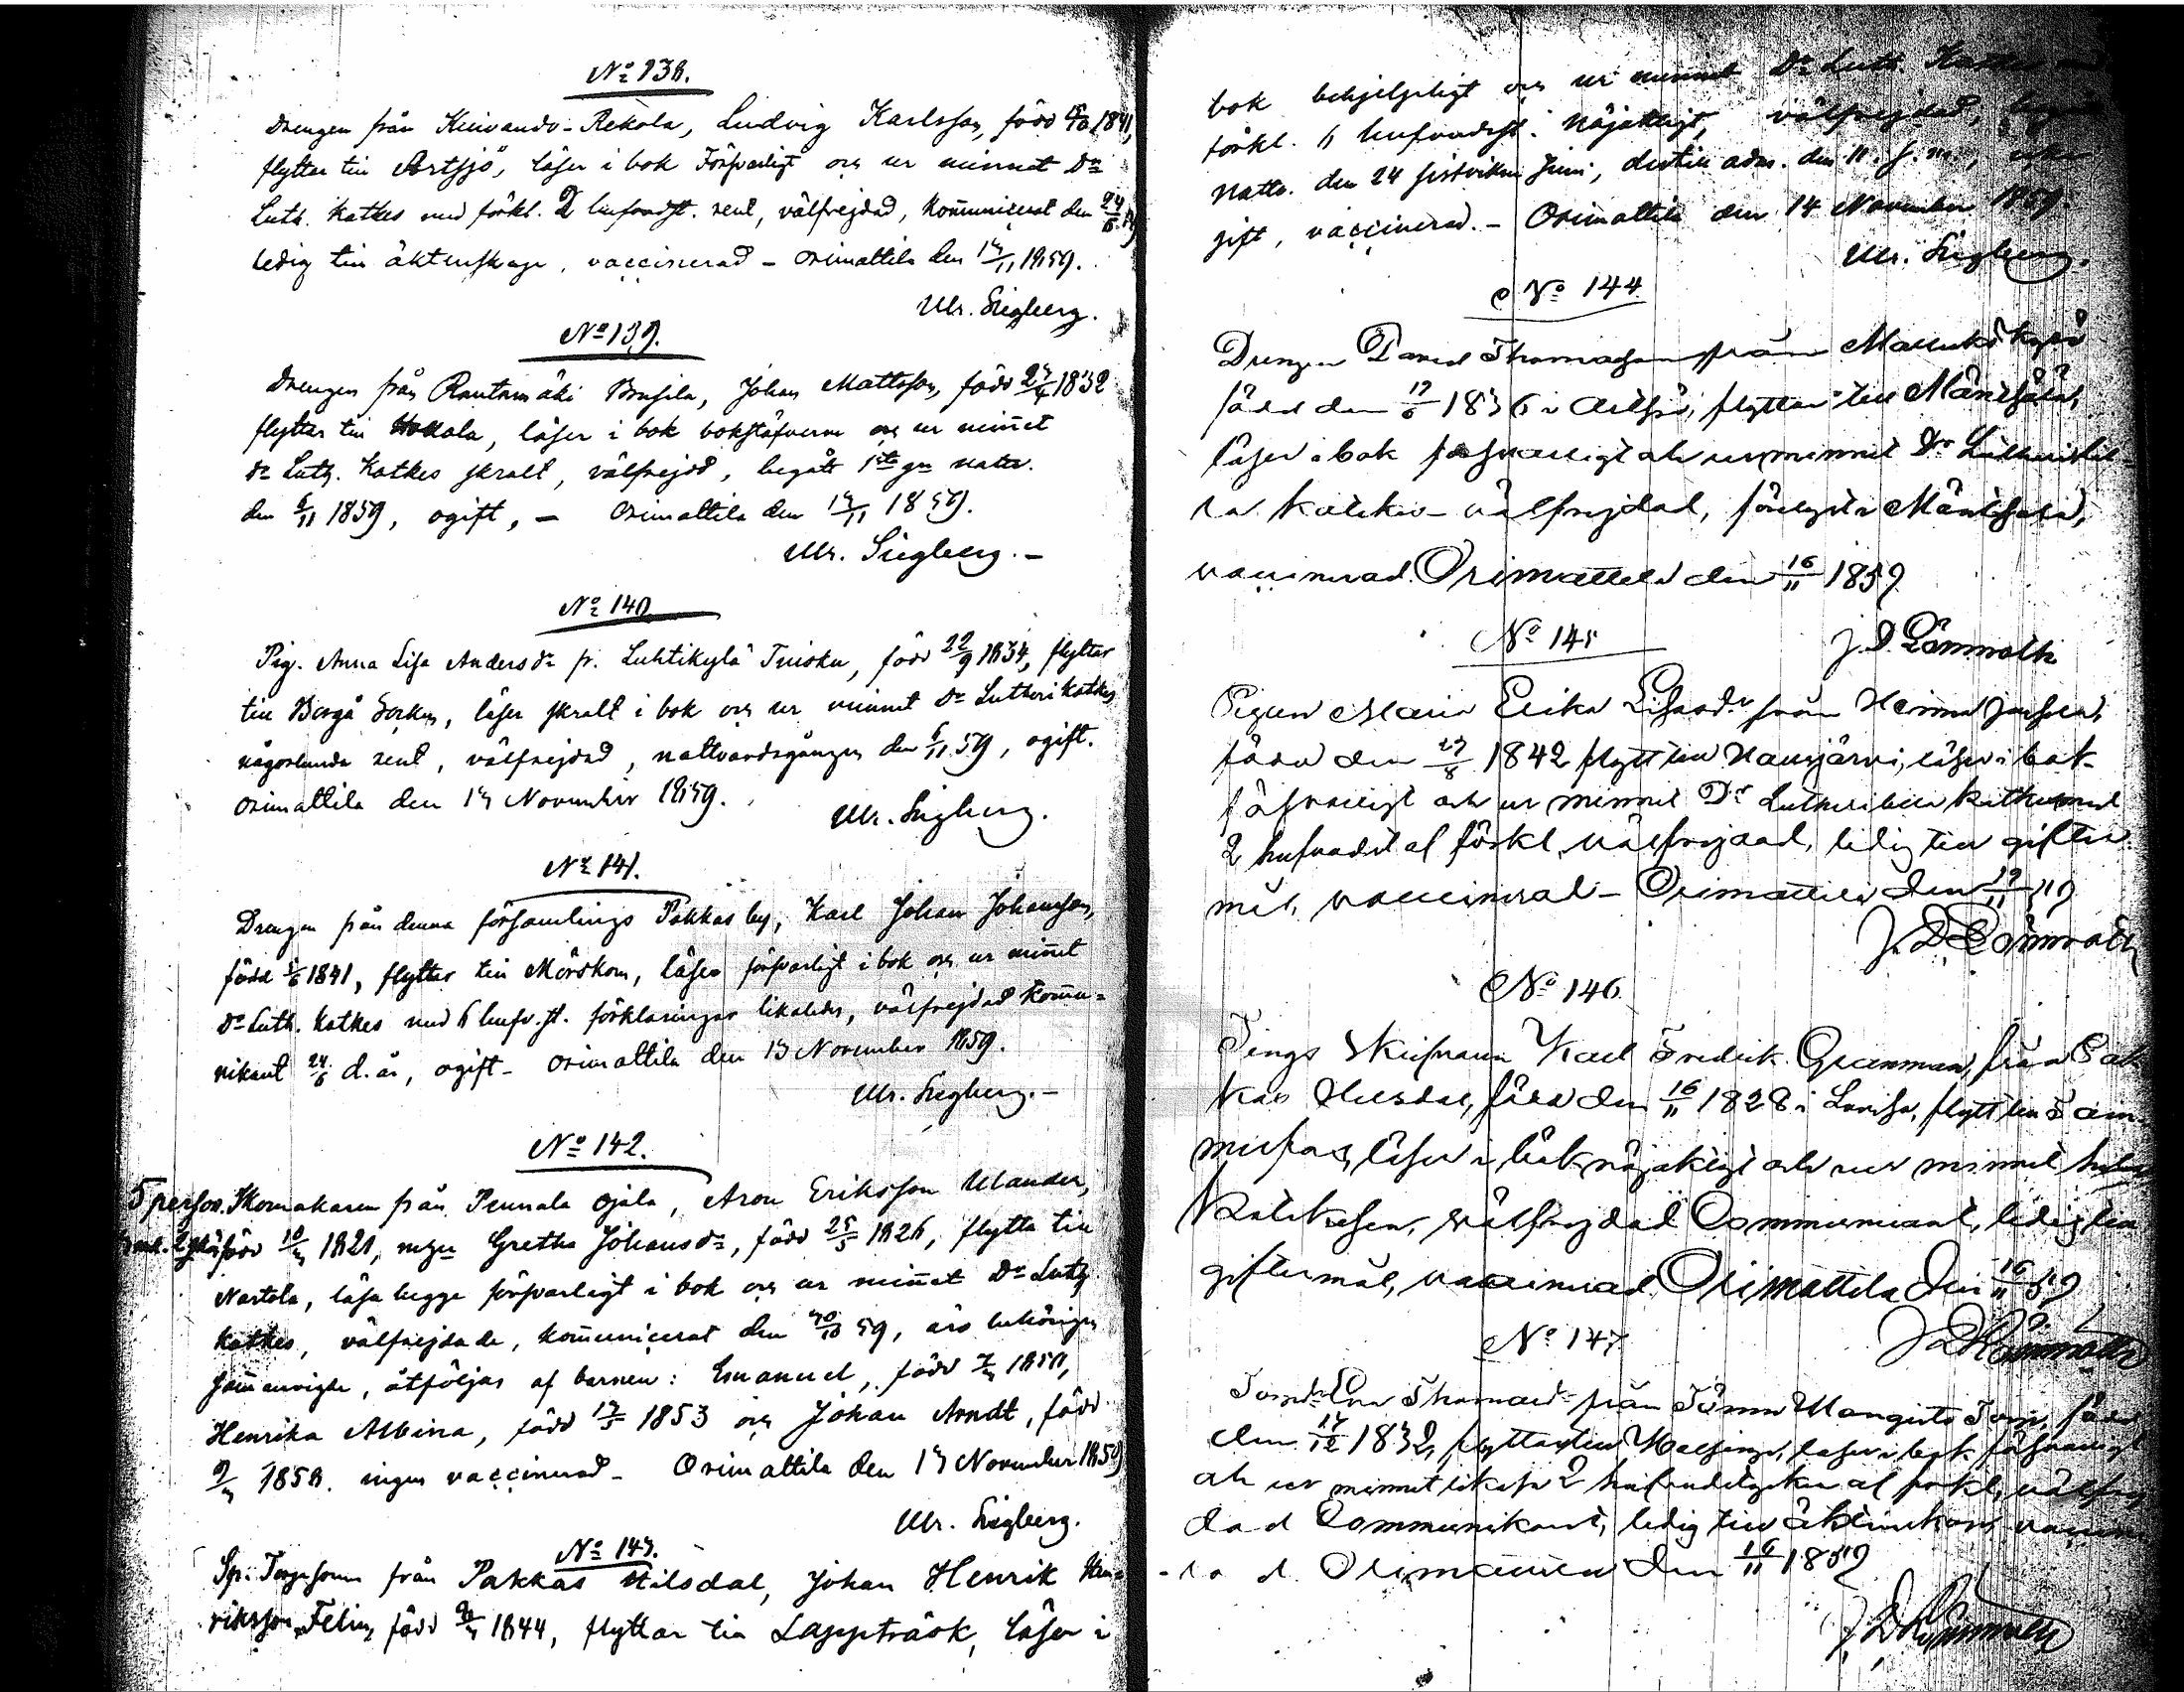 No 138.
Drengen från Keivando-Rekola, Ludvig Karlsson, född 1841,
flyttar till Artsjö, läser i bok försvarligt och ur minnet Dr
Luth. katkes med förkl. 2 hufvudst. rent, välfrejdad, kommunicerat den 24/6
ledig till äktenskap, vaccinerad – Orimattila den 14/11 1859.
Ulr. Siegberg.
No 139.
Drengen från Rautamäki Brusila, Johan Mattsson, född 1832
flyttar till Hollola, läser i bok bokstäfverne och ur minnet
Dr Luth. Katkes skralt, välfrejdd, begått 1sta gn nattv.
den 6/11 1859, ogift, – Orimattila den 14/11 1859.
Ulr. Siegberg. –
No 140.
Pig. Anna Lisa Andersdr fr. Luhtikylä Tuisku, född 22/9 1834, flyttar
till Borgå Socken, läser skralt i bok och ur minnet Dr Lutheri katkes
någorlunda rent, välfrejdad, nattvardsgången den 6/11 59, ogift.
Orimattila den 14 November 1859.
Ulr. Siegberg.
No 141.
Drengen från denna församlings Pakkas by, Karl Johan Johansson,
född 1841, flyttar till Mörskom, läser försvarligt i bok och ur minnet
Dr Luth. katkes med 6 hufv.st. förklaringar likaledes, välfrejdad kommu=
nikant 24/6 d. år, ogift – Orimattila den 14 November 1859.
Ulr. Siegberg. –
No 142.
5 person. Skomakaren från Pennala Ojala, Aron Eriksson Ulander,
född 1821, med Gretha Johansdr, född 25/5 1826, flytta till
Nastola, läsa begge försvarligt i bok och ur minnet Dr Luth.
katkes, välfrejdade, kommunicerat den 59, äro behörigen
sammanvigde, åtföljas af barnen: Emanuel, född 1850,
Henrika Albina, född 17/5 1853 och Johan Arndt, född
1858. ingen vaccinerad – Orimattila den 14 November 1859
Ulr. Siegberg.
No 143.
Sp: Torp sonen från Pakkas Hilsdal, Johan Henrik Hen=
riksson Felin, född 1844, flyttar till Lappträsk, läser i
bok behjelpligt och ur minnet Dr Luth. Katkes
förkl. 6 hufvudst. nöjaktigt, välfrejdad,
nattv. den 24 sistvikne Juni, dertill adm. den 11. s. m.,
gift, vaccinerad. – Orimattila den 14 November 1859.
Ulr. Siegberg.
No 144
Drengen David Thomasson från Mallusköky
född den 17/6 1836 i Artsjö, flyttar till Mäntsälä,
läser i bok försvarligt och ur minnet Dr Lutheri
ra kateches välfrejdad, i Mäntsälä,
vaccinerad. Orimattila den 16/11 1859
J. D. Lönnroth
No 145
Pigan Maria Erika Lisasdr från Heinna
född den 27/8 1842 flytt till Hausjärvi, läser i bok
försvarligt och ur minnet Dr Lutheri lilla Katkes med
2 hufvudst af förkl, välfrejdad, ledig till gifter
mål, vaccinerad – Orimattila den 17/11 59
J. D. Lönnroth
No 146.
Tings Skrifvaren Karl Fredrik Grenman, från Pak
kas Hilsdal, född den 16/11 1828 i Lovisa, flytt till Tam
merfors, läser i bok nöjaktigt och ur minnet hela
Katekesen, välfrejdad Communicant, ledig till
giftermål, vaccinerad. Orimattila den 16/11 59
J. D. Lönnroth
No 147
Eva Thomasdr från Tönnö
den 17/12 1832, flyttar till Helsinge, läser i bok försvarligt
och ur minnet likaså 2 hufvudstycken af förkl, välfrej
dad Communikant, ledig till äktenskap vaccine
rad. Orimattila den 16/11 1859
J. D. Lönnroth